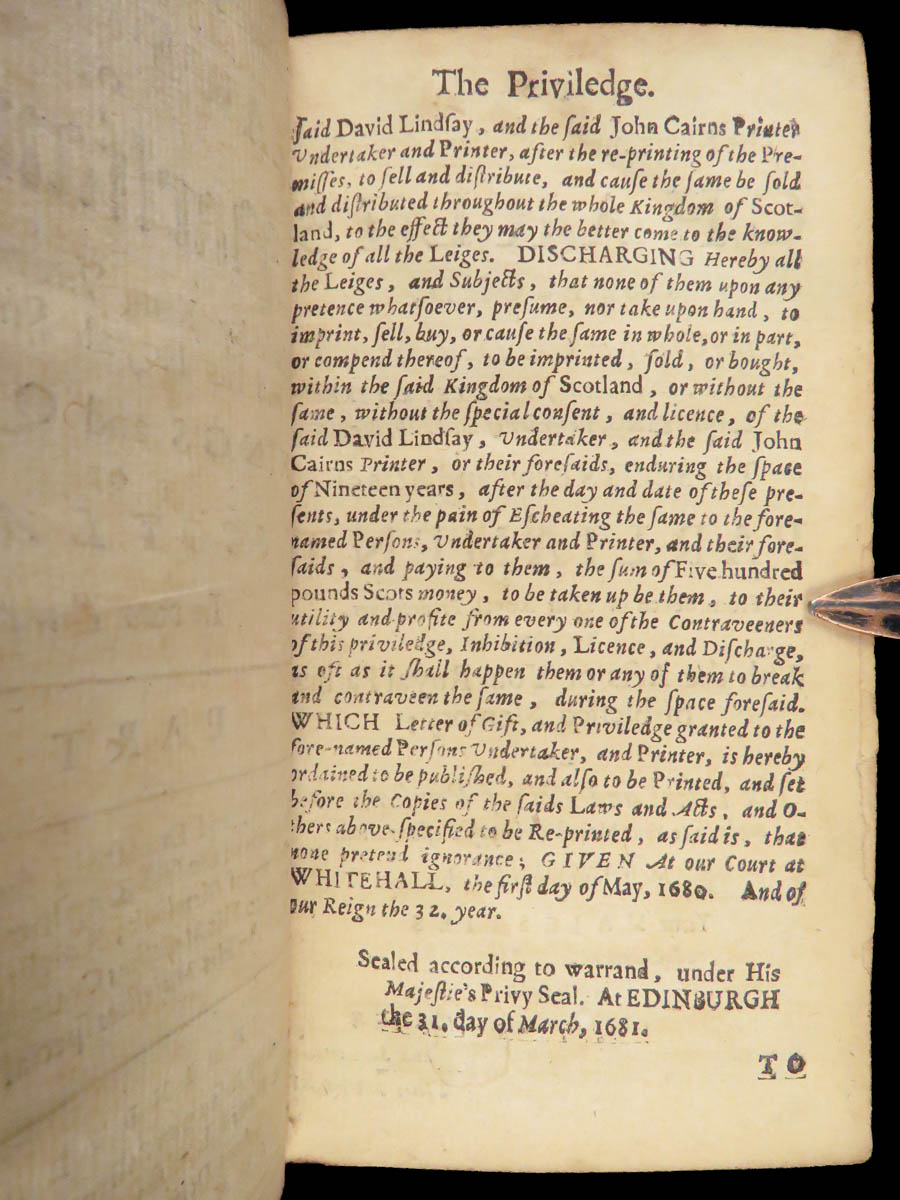 The Priviledge.
ſaid David Lindſay, and the ſaid John Cairns Printer
Undertaker and Printer, after the re-printing of the Pre-
miſſes, to ſell and diſtribute, and cauſe the ſame be ſold
and diſtributed throughout the whole Kingdom of Scot-
land, to the effect they may the better come to the know-
ledge of all the Leiges. DISCHARGING Hereby all
the Leiges, and Subjects, that none of them upon any
pretence whatſoever, preſume, nor take upon hand, to
imprint, ſell, buy, or cauſe the ſame in whole, or in part,
or compend thereof, to be imprinted, ſold, or bought,
within the ſaid Kingdom of Scotland, or without the
ſame, without the ſpecial conſent, and licence, of the
ſaid David Lindſay, Undertaker, and the ſaid John
Cairns Printer, or their foreſaids, enduring the ſpace
of Nineteen years, after the day and date of theſe pre-
ſents, under the pain of Eſcheating the ſame to the fore-
named Perſons, Undertaker and Printer, and their fore-
ſaids, and paying to them, the ſum of Five hundred
pounds Scots money, to be taken up be them, to their
utility and profite from every one of the Contraveeners
of this priviledge, Inhibition, Licence, and Diſcharge,
as oft as it ſhall happen them or any of them to break
and contraveen the ſame, during the ſpace foreſaid.
WHICH Letter of Gift, and Priviledge granted to the
fore-named Perſons Undertaker, and Printer, is hereby
ordained to be publiſhed, and alſo to be Printed, and ſet
before the Copies of the ſaids Laws and Acts, and O-
thers above-ſpecified to be Re-printed, as ſaid is, that
none pretend ignorance; GIVEN At our Court at
WHITEHALL, the firſt day of May, 1680. And of
our Reign the 32. year.
Sealed according to warrand, under His
Majeſtie's Privy Seal. At EDINBURGH
the 31. day of March, 1681.
TO